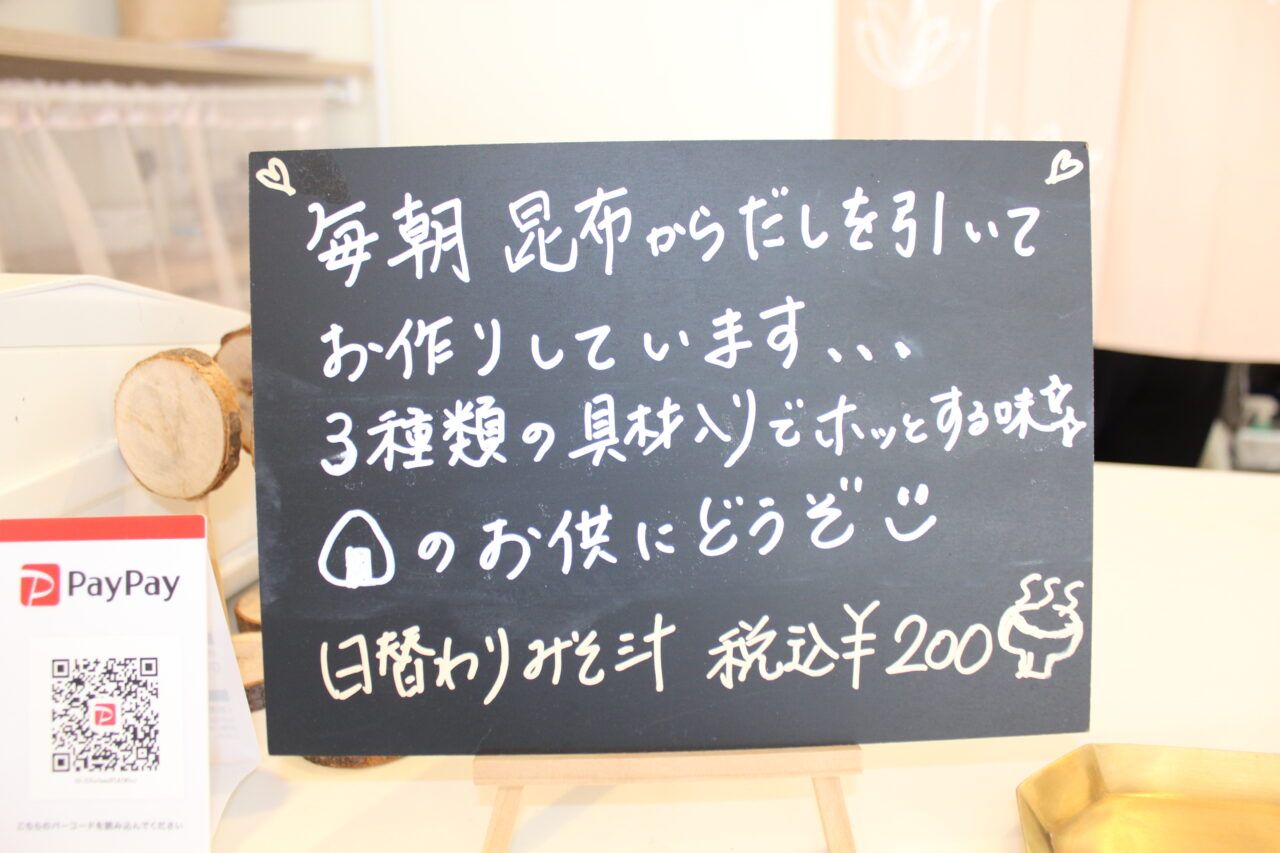 毎朝 昆布からだしを引いて
お作りしています、、、
3種類の具材入りでホッとする味
のお供にどうぞ
日替わりみそ汁 税込¥200
PayPay
こちらのバーコードを読み込んでください